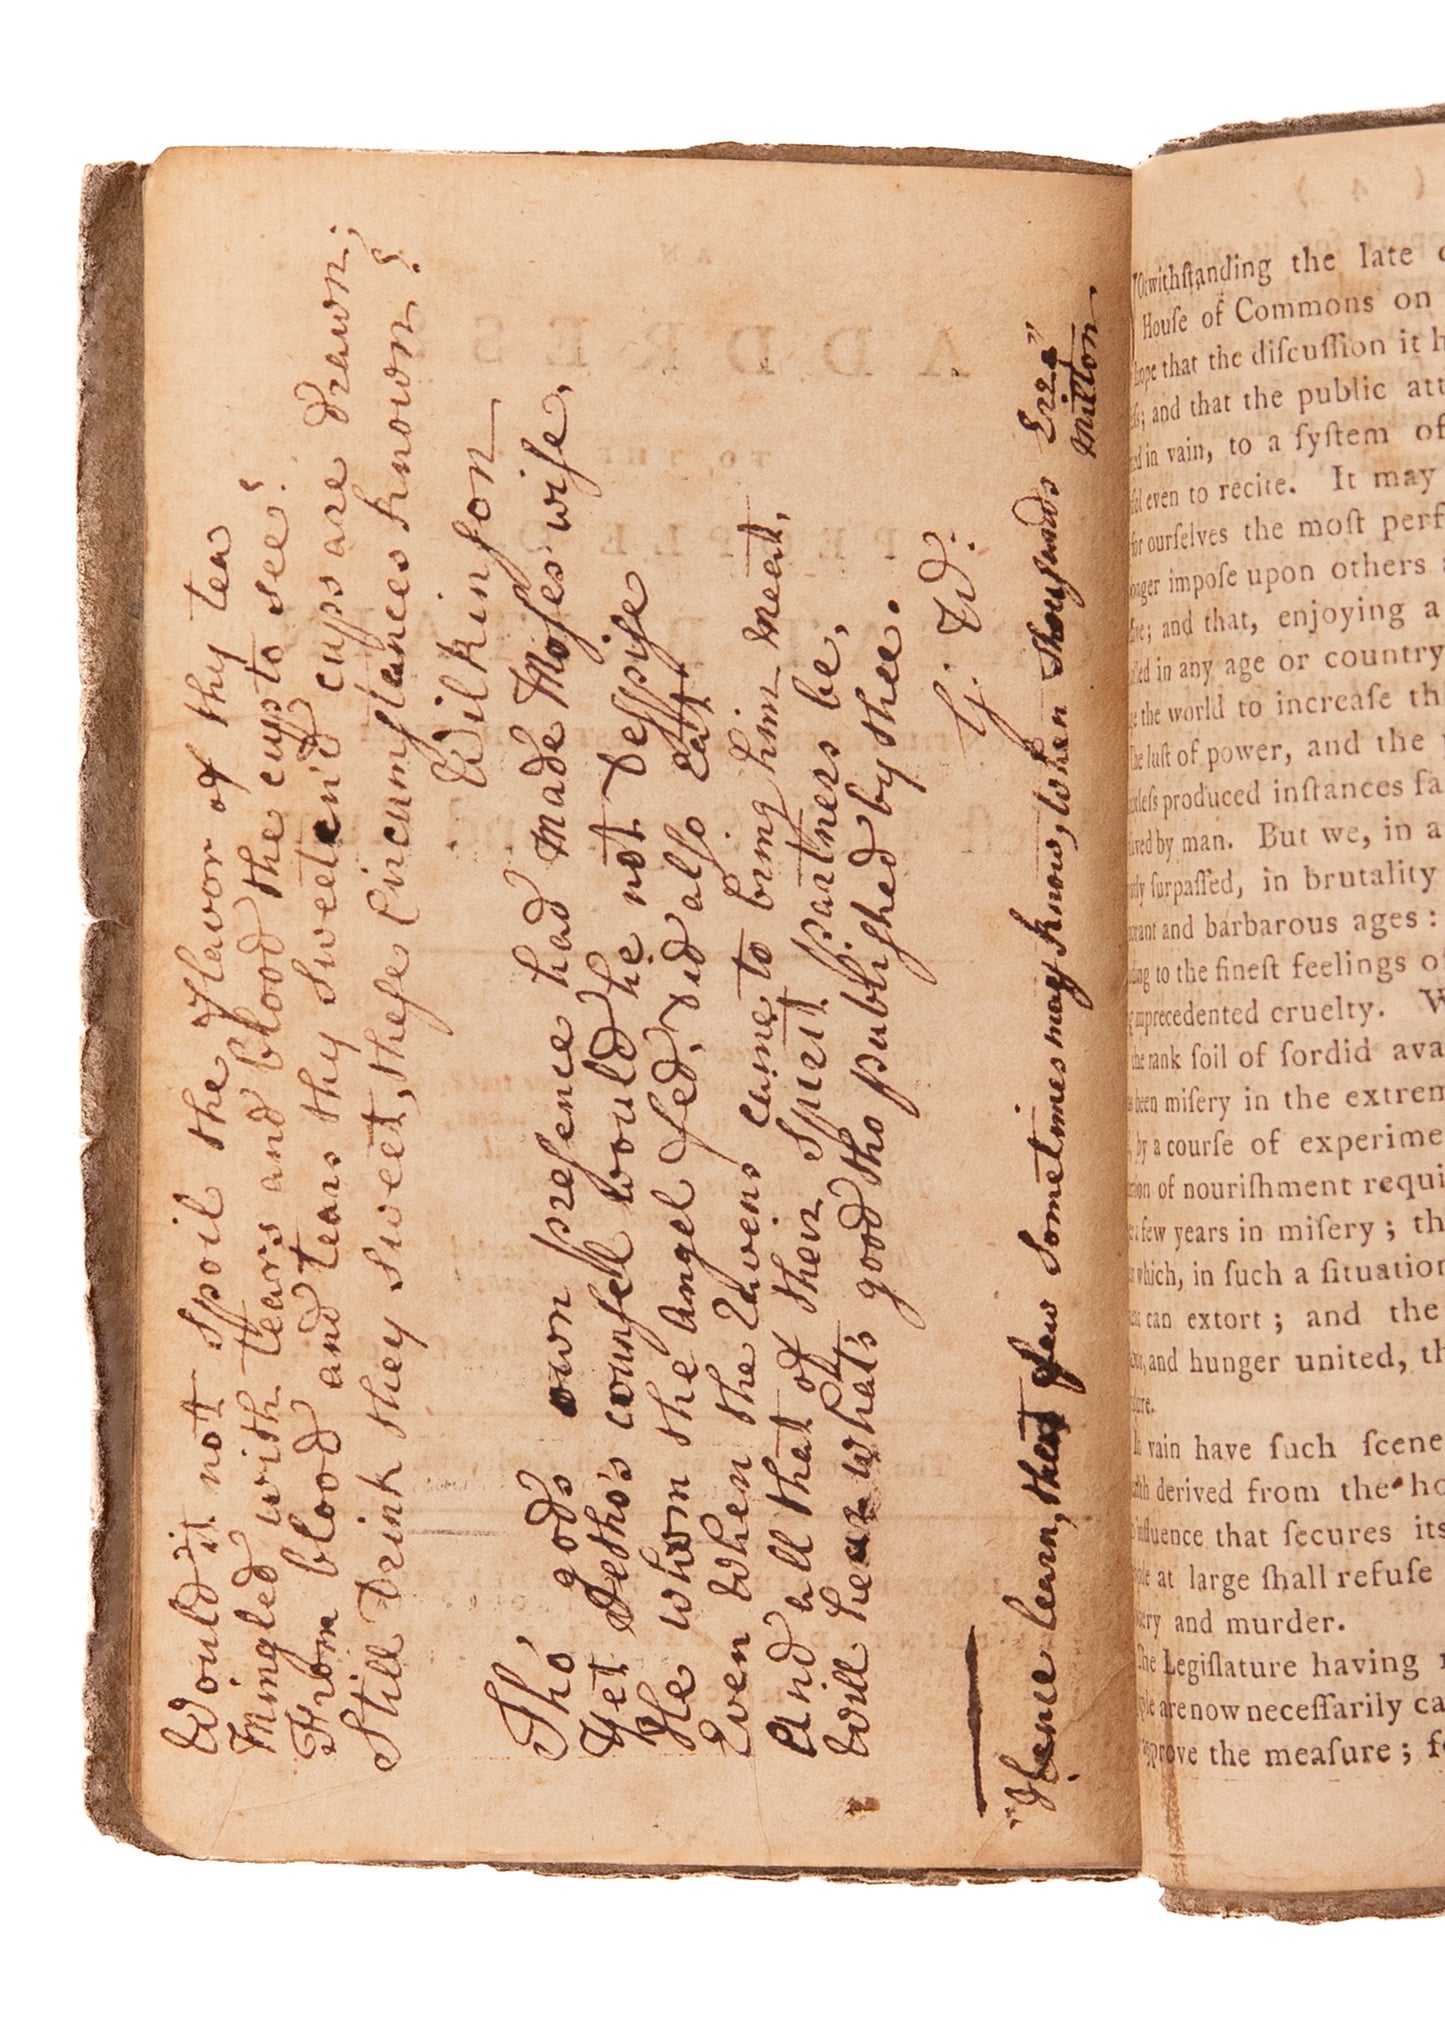 Would it not spoil the Flavor of thy tea
Mingled with tears and blood the cup to see!
From blood and tears thy sweeten'd cups are drawn;
Still Drink they sweet, these Circumstances known?
Wilkinson
Tho' gods own presence had made Moses wife,
Yet Jetho's counsell would he not Despise
He whom the Angel fed, Did also eat
Even when the Ravens came to bring him Meat,
And all that of their Spirit Partners be,
Will hear what's good tho published by thee.
G. W.
"Hence learn, that few Sometimes may know, when Thousands Err"
Milton
Notwithstanding the late
House of Commons on
hope that the discussion it h
; and that the public att
in vain, to a system of
even to recite. It may
for ourselves the most perf
longer impose upon others
; and that, enjoying a
in any age or country
the world to increase th
The lust of power, and the
produced instances fa
by man. But we, in a
surpassed, in brutality
and barbarous ages :
to the finest feelings o
unprecedented cruelty. W
the rank soil of sordid ava
been misery in the extrem
by a course of experime
of nourishment requi
a few years in misery ; th
which, in such a situation
can extort ; and the
and hunger united, th
In vain have such scene
derived from the ho
influence that secures its
at large shall refuse
and murder.
The Legislature having
are now necessarily ca
approve the measure ; f
( 4 )
AN
ADDRESS
TO THE
PEOPLE O